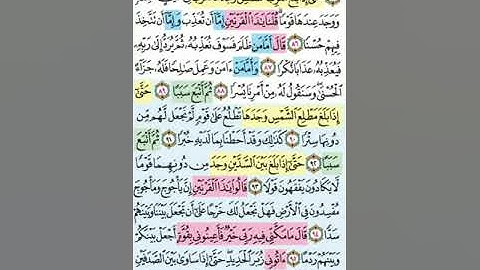 وَوَجَدَ عِندَهَا قَوْمًا قُلْنَا يَٰذَا ٱلْقَرْنَيْنِ إِمَّآ أَن تُعَذِّبَ وَإِمَّآ أَن تَتَّخِذَ
فِيهِمْ حُسْنًا ٨٦ قَالَ أَمَّا مَن ظَلَمَ فَسَوْفَ نُعَذِّبُهُۥ ثُمَّ يُرَدُّ إِلَىٰ رَبِّهِۦ
فَيُعَذِّبُهُۥ عَذَابًا نُّكْرًا ٨٧ وَأَمَّا مَنْ ءَامَنَ وَعَمِلَ صَٰلِحًا فَلَهُۥ جَزَآءً
ٱلْحُسْنَىٰ وَسَنَقُولُ لَهُۥ مِنْ أَمْرِنَا يُسْرًا ٨٨ ثُمَّ أَتْبَعَ سَبَبًا ٨٩ حَتَّىٰٓ
إِذَا بَلَغَ مَطْلِعَ ٱلشَّمْسِ وَجَدَهَا تَطْلُعُ عَلَىٰ قَوْمٍ لَّمْ نَجْعَل لَّهُم مِّن
دُونِهَا سِتْرًا ٩٠ كَذَٰلِكَ وَقَدْ أَحَطْنَا بِمَا لَدَيْهِ خُبْرًا ٩١ ثُمَّ أَتْبَعَ
سَبَبًا ٩٢ حَتَّىٰٓ إِذَا بَلَغَ بَيْنَ ٱلسَّدَّيْنِ وَجَدَ مِن دُونِهِمَا قَوْمًا
لَّا يَكَادُونَ يَفْقَهُونَ قَوْلًا ٩٣ قَالُوا۟ يَٰذَا ٱلْقَرْنَيْنِ إِنَّ يَأْجُوجَ وَمَأْجُوجَ
مُفْسِدُونَ فِي ٱلْأَرْضِ فَهَلْ نَجْعَلُ لَكَ خَرْجًا عَلَىٰٓ أَن تَجْعَلَ بَيْنَنَا وَبَيْنَهُمْ
سَدًّا ٩٤ قَالَ مَا مَكَّنِّي فِيهِ رَبِّي خَيْرٌ فَأَعِينُونِي بِقُوَّةٍ أَجْعَلْ بَيْنَكُمْ
وَبَيْنَهُمْ رَدْمًا ٩٥ ءَاتُونِي زُبَرَ ٱلْحَدِيدِ حَتَّىٰٓ إِذَا سَاوَىٰ بَيْنَ ٱلصَّدَفَيْنِ